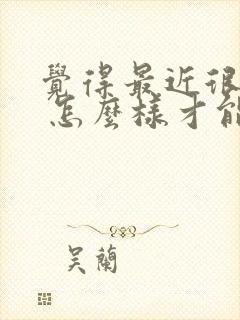 覺得最近很
怎麼樣才能
吳蘭